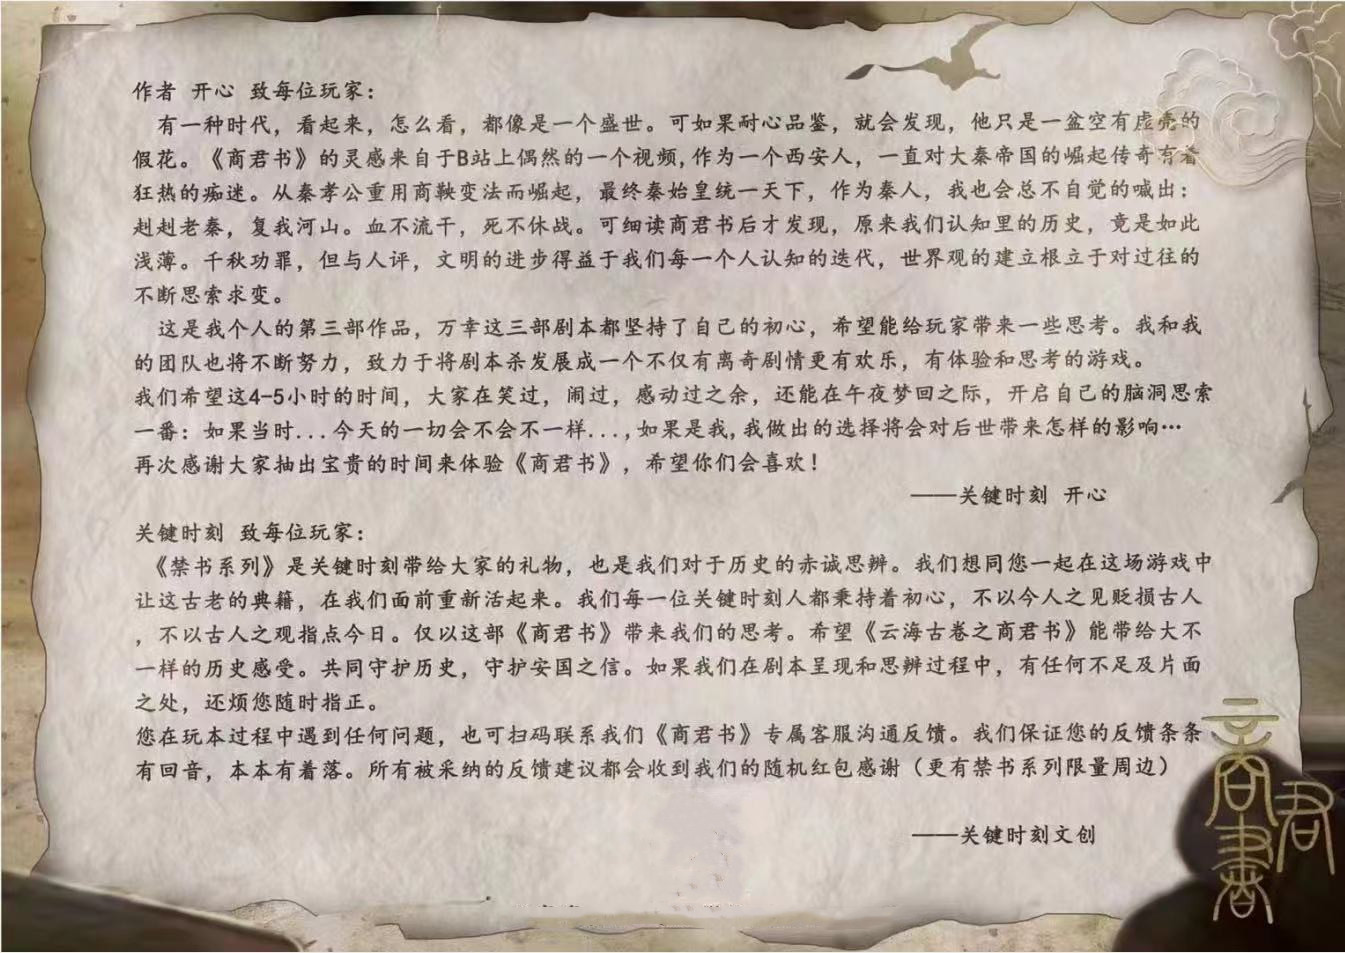 作者 开心 致每位玩家：
有一种时代，看起来，怎么看，都像是一个盛世。可如果耐心品鉴，就会发现，他只是一盆空有虚壳的
假花。《商君书》的灵感来自于B站上偶然的一个视频,作为一个西安人，一直对大秦帝国的崛起传奇有着
狂热的痴迷。从秦孝公重用商鞅变法而崛起，最终秦始皇统一天下，作为秦人，我也会总不自觉的喊出：
赳赳老秦，复我河山。血不流干，死不休战。可细读商君书后才发现，原来我们认知里的历史，竟是如此
浅薄。千秋功罪，但与人评，文明的进步得益于我们每一个人认知的迭代，世界观的建立根立于对过往的
不断思索求变。
这是我个人的第三部作品，万幸这三部剧本都坚持了自己的初心，希望能给玩家带来一些思考。我和我
的团队也将不断努力，致力于将剧本杀发展成一个不仅有离奇剧情更有欢乐，有体验和思考的游戏。
我们希望这4-5小时的时间，大家在笑过，闹过，感动过之余，还能在午夜梦回之际，开启自己的脑洞思索
一番：如果当时...今天的一切会不会不一样...,如果是我,我做出的选择将会对后世带来怎样的影响…
再次感谢大家抽出宝贵的时间来体验《商君书》，希望你们会喜欢！
——关键时刻 开心
关键时刻 致每位玩家：
《禁书系列》是关键时刻带给大家的礼物，也是我们对于历史的赤诚思辨。我们想同您一起在这场游戏中
让这古老的典籍，在我们面前重新活起来。我们每一位关键时刻人都秉持着初心，不以今人之见贬损古人
，不以古人之观指点今日。仅以这部《商君书》带来我们的思考。希望《云海古卷之商君书》能带给大不
一样的历史感受。共同守护历史，守护安国之信。如果我们在剧本呈现和思辨过程中，有任何不足及片面
之处，还烦您随时指正。
您在玩本过程中遇到任何问题，也可扫码联系我们《商君书》专属客服沟通反馈。我们保证您的反馈条条
有回音，本本有着落。所有被采纳的反馈建议都会收到我们的随机红包感谢（更有禁书系列限量周边）
——关键时刻文创
商君書